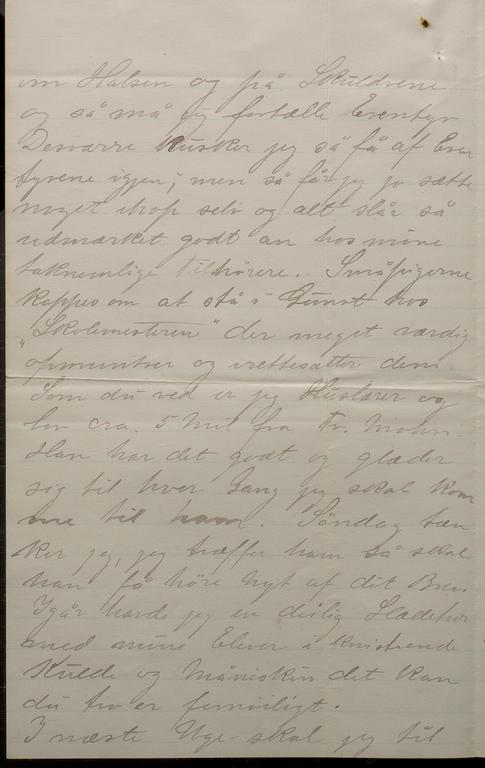 om Halsen og på Skuldrene
og så må jeg fortælle Eventyr
Desværre husker jeg så få af Even
tyrene igjen; men så får jeg jo sætte
noget ihop selv og alt slår så
udmærket godt an hos mine
taknemlige Tilhörere. Småpigerne
kappes om at stå i Gunst hos
"Skolemesteren" der meget værdig
opmuntrer og irettesætter dem.
Som du ved er jeg Huslærer og
bor cra. 5 Mil fra Fr. Mohn.
Han har det godt og glæder
sig til hver Gang jeg skal kom
me til ham. Söndag tæn
ker jeg, jeg træffer ham så skal
han få höre Nyt af dit Brev.
Igår havde jeg en deilig Slædetur
med mine Elever i knistrende
Kulde og Måneskin det kan
du tro er fornöiligt.
I næste Uge skal jeg til